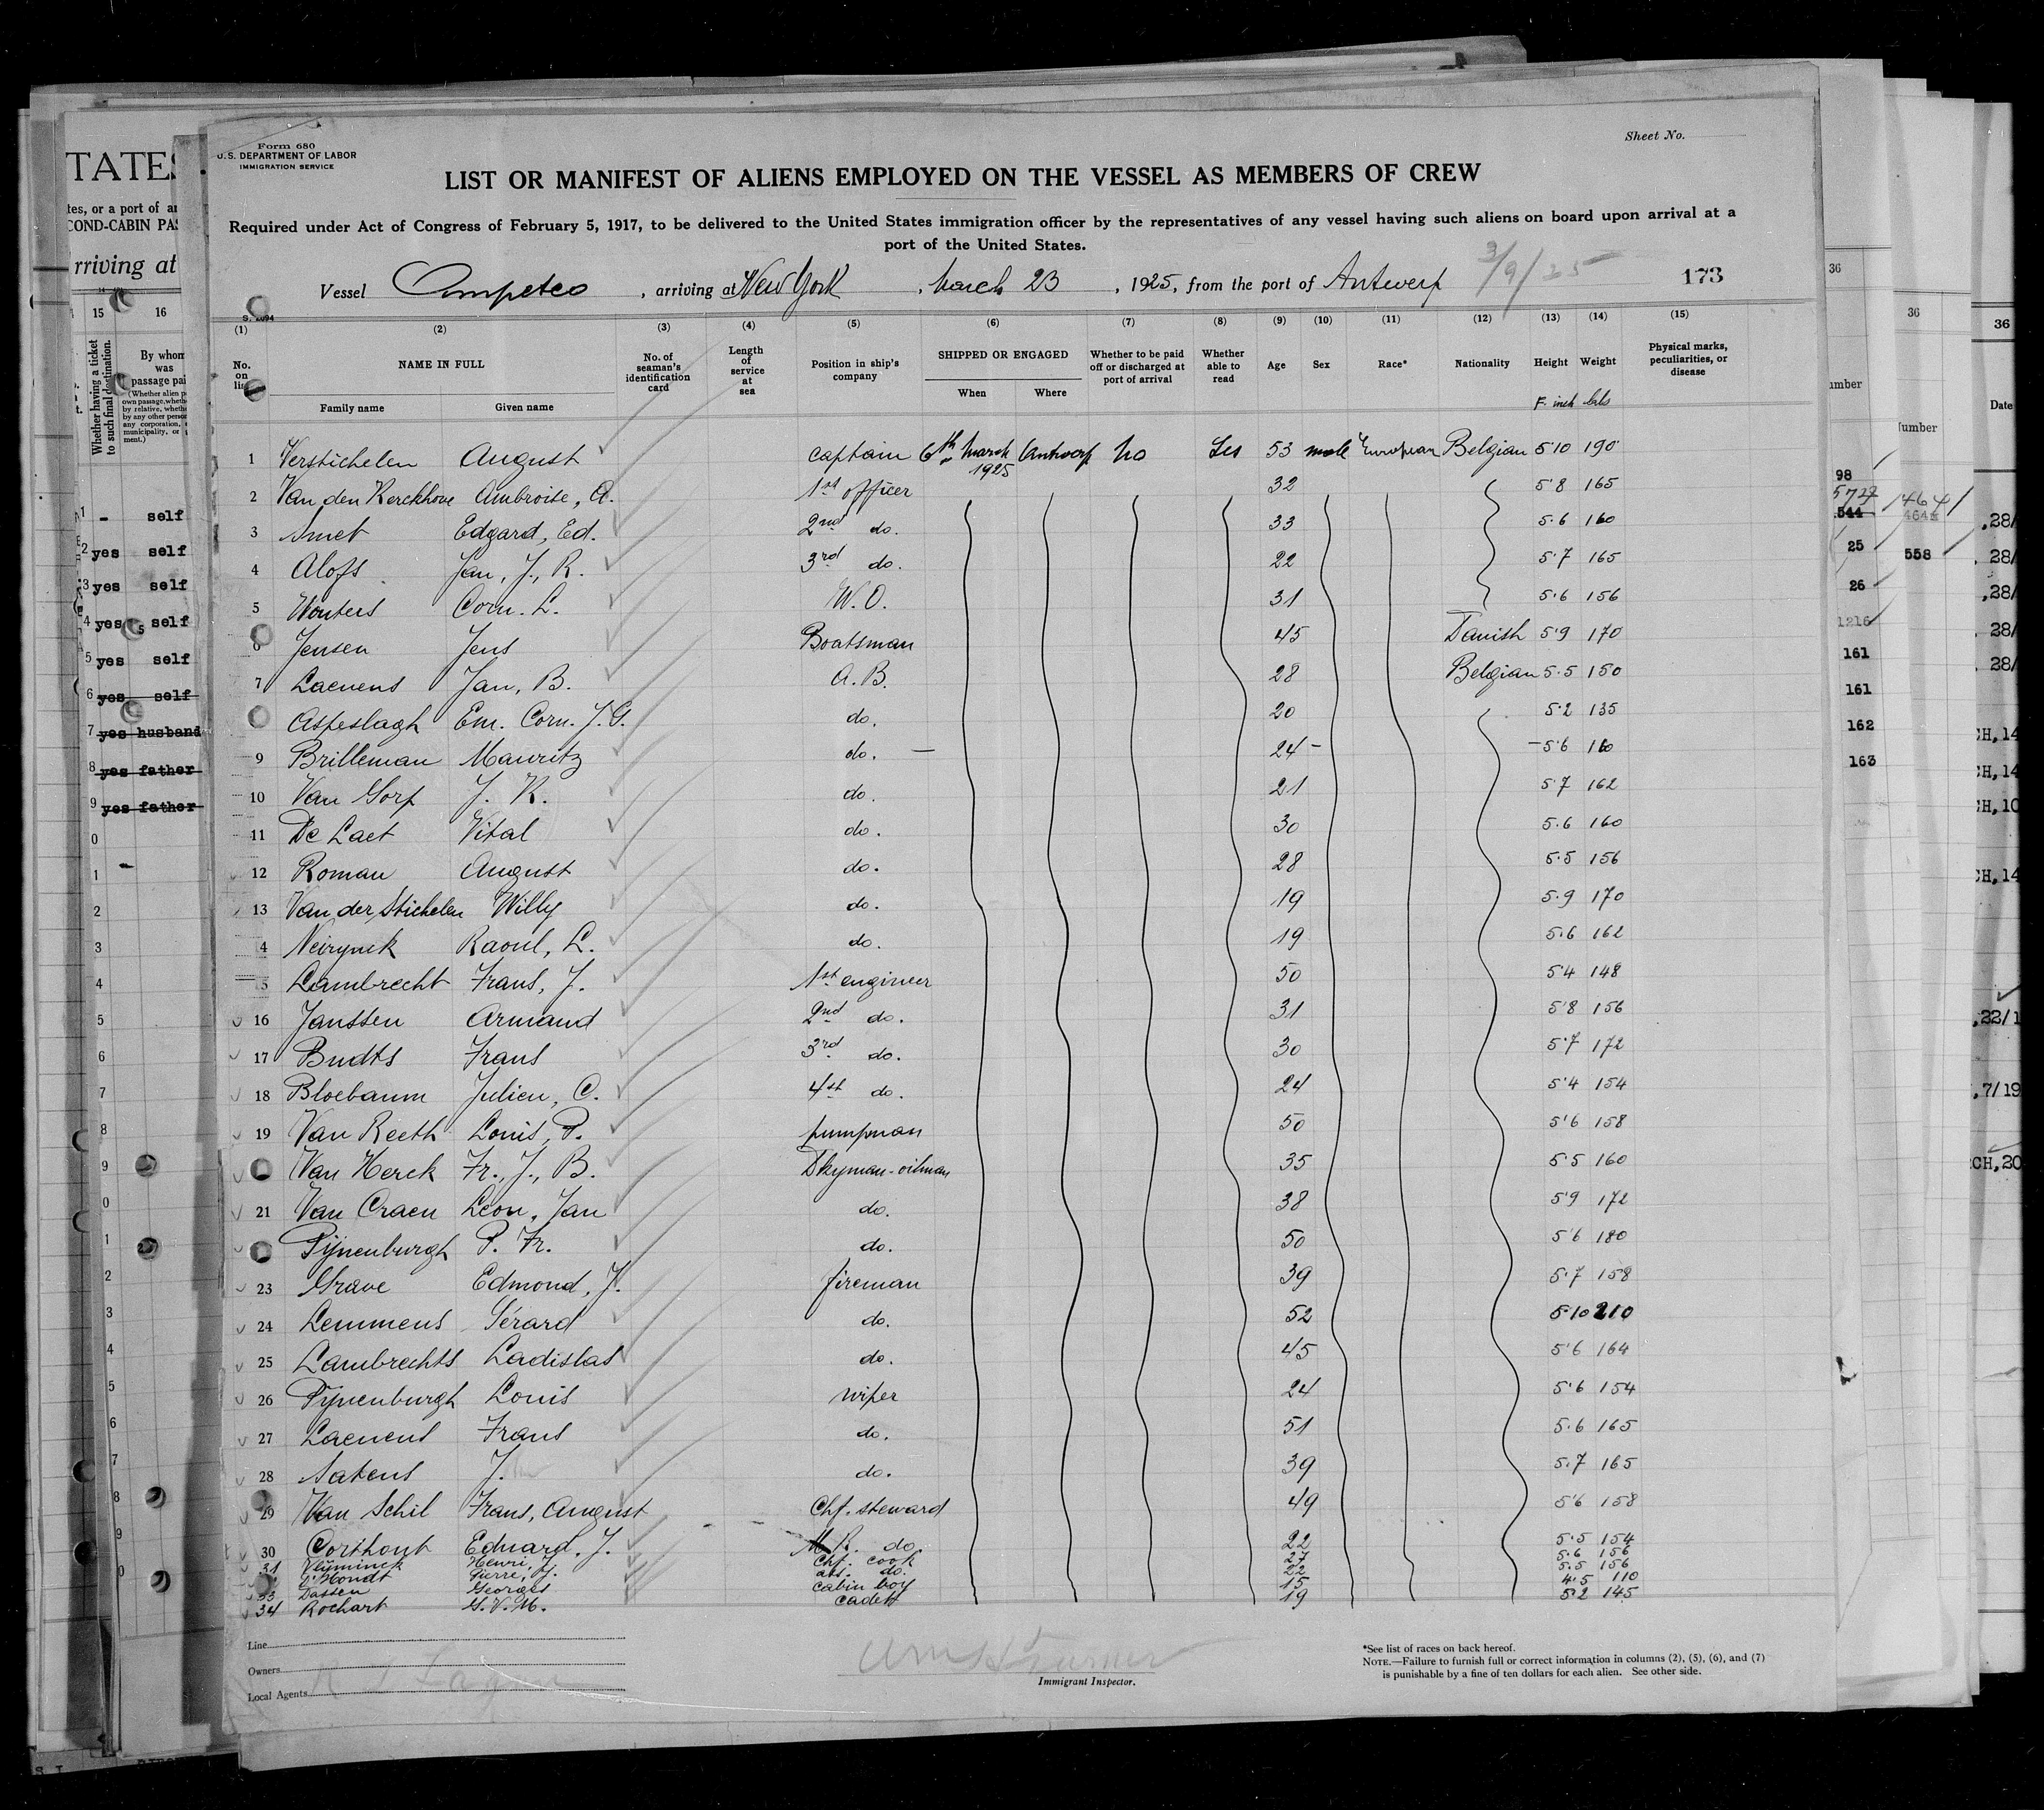 Form 680
U.S. DEPARTMENT OF LABOR
IMMIGRATION SERVICE
Sheet No.
LIST OR MANIFEST OF ALIENS EMPLOYED ON THE VESSEL AS MEMBERS OF CREW
Required under Act of Congress of February 5, 1917, to be delivered to the United States immigration officer by the representatives of any vessel having such aliens on board upon arrival at a
port of the United States.
Vessel , arriving at New York , March 23 , 1925, from the port of Antwerp 3/9/25 173
(1) (2) (3) (4) (5) (6) (7) (8) (9) (10) (11) (12) (13) (14) (15)
No. on list NAME IN FULL Family name Given name No. of seaman's identification card Length of service at sea Position in ship's company SHIPPED OR ENGAGED When Where Whether to be paid off or discharged at port of arrival Whether able to read Age Sex Race* Nationality Height Weight Physical marks, peculiarities, or disease
F. inch lbs
1 Verstichelen August captain 6th March 1925 Antwerp No Yes 53 male European Belgian 5'10 190
2 Van den Kerckhove Ambroise, A. 1st officer 32 5'8 165
3 Smet Edgard, Ed. 2nd do. 33 5.6 160
4 Alofs Jan, J., R. 3rd do. 22 5'7 165
5 Wouters Corn. L. W.O. 31 5.6 156
6 Jensen Jens Boatsman 45 Danish 5'9 170
7 Laenens Jan, B. A.B. 28 Belgian 5.5 150
Aspeslagh Em. Corn. J.G. do. 20 5.2 135
9 Brilleman Mauritz do. — 24 – – 5'6 160
10 Van Gorp J. K. do. 21 5.7 162
11 De Laet Vital do. 30 5.6 160
12 Roman August do. 28 5.5 156
13 Van der Stichelen Willy do. 19 5.9 170
4 Neirynck Raoul, L. do. 19 5.6 162
5 Lambrecht Frans, J. 1st engineer 50 5'4 148
16 Janssen Armand 2nd do. 31 5'8 156
17 Budts Frans 3rd do. 30 5'7 172
18 Bloebaum Julien, C. 4st do. 24 5'4 154
19 Van Reeth Louis, P. pumpman 50 5'6 158
Van Herck Fr., J., B. Dkyman-oilman 35 5.5 160
21 Van Craen Leon, Jan do. 38 5'9 172
Pijnenburgh P. Fr. do. 50 5'6 180
23 Grave Edmond, J. fireman 39 5.7 158
24 Lemmens Gérard do. 52 5'10 210
25 Lambrechts Ladislas do. 45 5'6 164
26 Pijnenburgh Louis wiper 24 5'6 154
27 Laenens Frans do. 51 5.6 165
28 J. do. 39 5.7 165
29 Van Schil Frans, August Chf. steward 49 5'6 158
30 Corthout Eduard, J. M.R. do. 22 5.5 154
31 Vlijminck Henri, J. Chf. cook 27 5.6 156
D'Hondt Pierre, J. ass. do. 22 5.5 156
33 Dassen Georges cabin boy 15 4.5 110
34 Rochart G.V.M. cadet 19 5.2 145
Line
Owners
Local Agents
Immigrant Inspector.
*See list of races on back hereof.
NOTE.—Failure to furnish full or correct information in columns (2), (5), (6), and (7)
is punishable by a fine of ten dollars for each alien. See other side.
TATES
COND-CABIN PAS
rriving at
15 16
Whether having a ticket to such final destination.
By whom was passage paid
1 - self
2 yes self
3 yes self
4 yes self
5 yes self
6 yes self
7 yes husband
8 yes father
9 yes father
36
98
544
25
26
1216
161
161
162
163
36
4641
558
36
Date